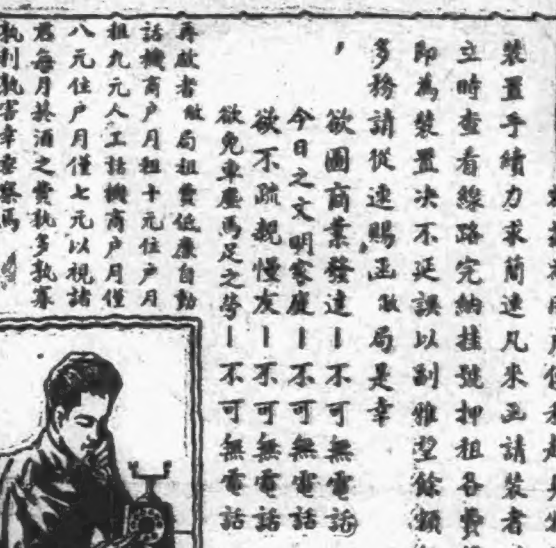 裝置手續力求簡速凡來函請裝者
立時查看線路完納挂號押租各費
即為裝置决不延誤以副雅望餘額
多務請從速賜函敝局是幸
欲圖商業發達－不可無電話
今日之文明家庭－不可無電話
欲不疏親慢友－不可無電話
欲免車塵馬足之勞－不可無電話
再啟者敝局租費低廉自動
話機商户月租十元住户月
租九元人工話機商户月僅
八元住户月僅七元以視諸
君每月菸酒之費孰多孰寡
孰利孰害幸垂察焉